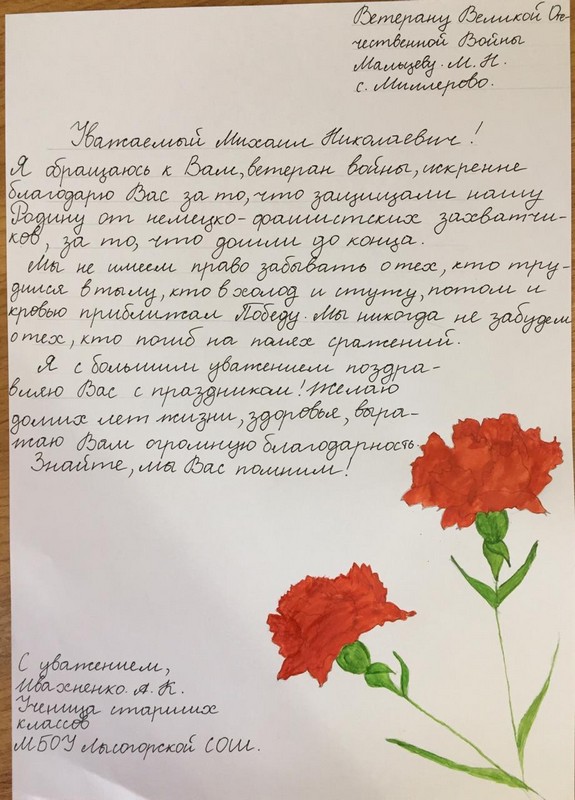 Ветерану Великой Оте-
чественной Войны
Мальцеву. М. Н.
с. Миллерово.
Уважаемый Михаил Николаевич!
Я обращаюсь к Вам, ветеран войны, искренне
благодарю Вас за то, что защищали нашу
Родину от немецко-фашистских захватчи-
ков, за то, что дошли до конца.
Мы не имеем право забывать о тех, кто тру-
дился в тылу, кто в холод и стужу, потом и
кровью приближал Победу. Мы никогда не забудем
о тех, кто погиб на полях сражений.
Я с большим уважением поздра-
вляю Вас с праздником! Желаю
долгих лет жизни, здоровья, выра-
жаю Вам огромную благодарность.
Знайте, мы Вас помним!
С уважением,
Ивахненко. А. К.
Ученица старших
классов
МБОУ Лысогорской СОШ.